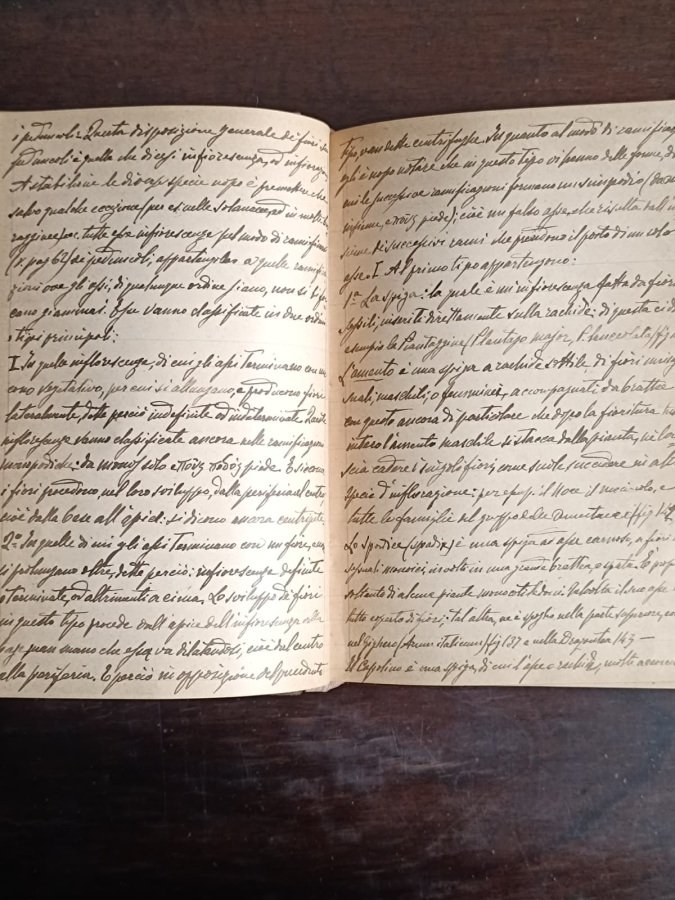 i peduncoli = Questa disposizione generale de' fiori su
peduncoli è quella che dicesi infiorescenza, od inflorazione
A stabilire le diverse specie uopo è premettere che
salvo qualche eccezione (per es. nelle solanacee, ed in molte bor
raggine) ec. tutte
(v. pag 62) de' peduncoli, appartengono a quelle ramifi
cazioni ove gli assi, di qualunque ordine siano, non si bifor
cano giammai. Esse vanno classificate in due ordini
o tipi principali:
I. In quelle inflorescenze, di cui gli assi terminano con un
cono vegetativo, per cui si allungano, e producono fiori
lateralmente, dette perciò indefinite od indeterminate. Queste
inflorescenze vanno classificate ancora nelle ramificazioni
monopodiche: da monos solo e πους ποδος piede. E siccome
i fiori procedono nel loro sviluppo, dalla periferia al centro
cioè dalla base all'apice: si dicono ancora centripete
2º In quelle di cui gli assi terminano con un fiore, non
si prolungano oltre, dette perciò: inflorescenze definite
o terminate, od altrimenti a cima. Lo sviluppo de' fiori
in questo tipo procede dall'apice dell'infiorescenza alla
base, man mano che essa va dilatandosi, cioè dal centro
alla periferia. E perciò in opposizione del precedente
tipo, van dette centrifughe. In quanto al modo di ramificarsi
egli è uopo notare che in questo tipo vi hanno delle forme, di
cui le successive ramificazioni formano un simpodio (da
insieme, e πους piede); cioè un falso asse, che risulta dall'in
sieme di successivi rami che prendono il porto di un solo
asse. I. Al primo tipo appartengono:
1º La spiga: la quale è un'inflorescenza fatta da fiori
sessili, inseriti direttamente sulla rachide: di questa ci dà
esempio la Piantaggine (Plantago major, P. lanceolata fig
L'amento è una spiga a rachide sottile di fiori unises
suali, maschili, o femminei, accompagnati da brattee
con questo ancora di particolare che dopo la fioritura
intero l'amento maschile si stacca dalla pianta, nè la
scia cadere i singoli fiori come suole succedere in altre
specie di inflorazione: per esempio il Noce il nocciuolo, e
tutte le famiglie del gruppo delle Amentacee (fig 142
Lo spadice (spadix) è una spiga ad asse carnoso, a fiori
sessuali monoici, involti in una grande brattea, o spata. È prop
soltanto di alcune piante monocotiledoni. Talvolta il suo asse
tutto coperto di fiori; tal altra, ne è spoglio nella parte superiore, co
nel gighero (Arum italicum) fig 137 o nella Dragontea 143 —
Il Capolino è una spiga, di cui l'asse o rachide, molto accorcia